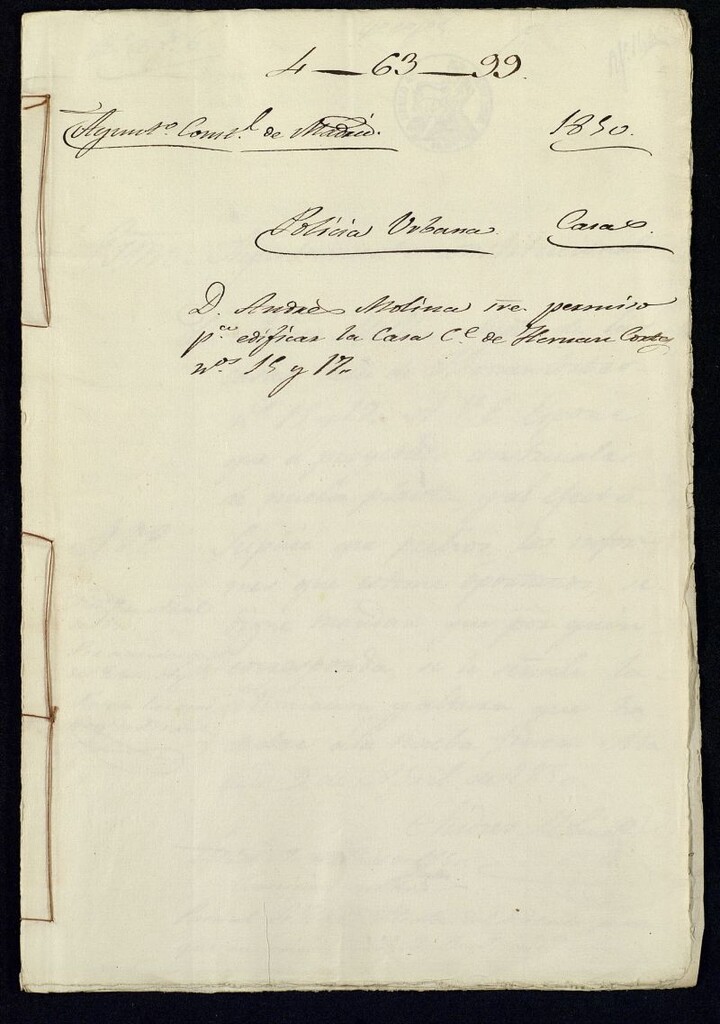 4 — 63 — 99.
Ayunto. Constl. de Madrid. 1850.
Policia Urbana. Casas.
D. Andrés Molina sre. permiso
pa. edificar la Casa Ce. de Hernan Cortes
nos. 15 y 17.